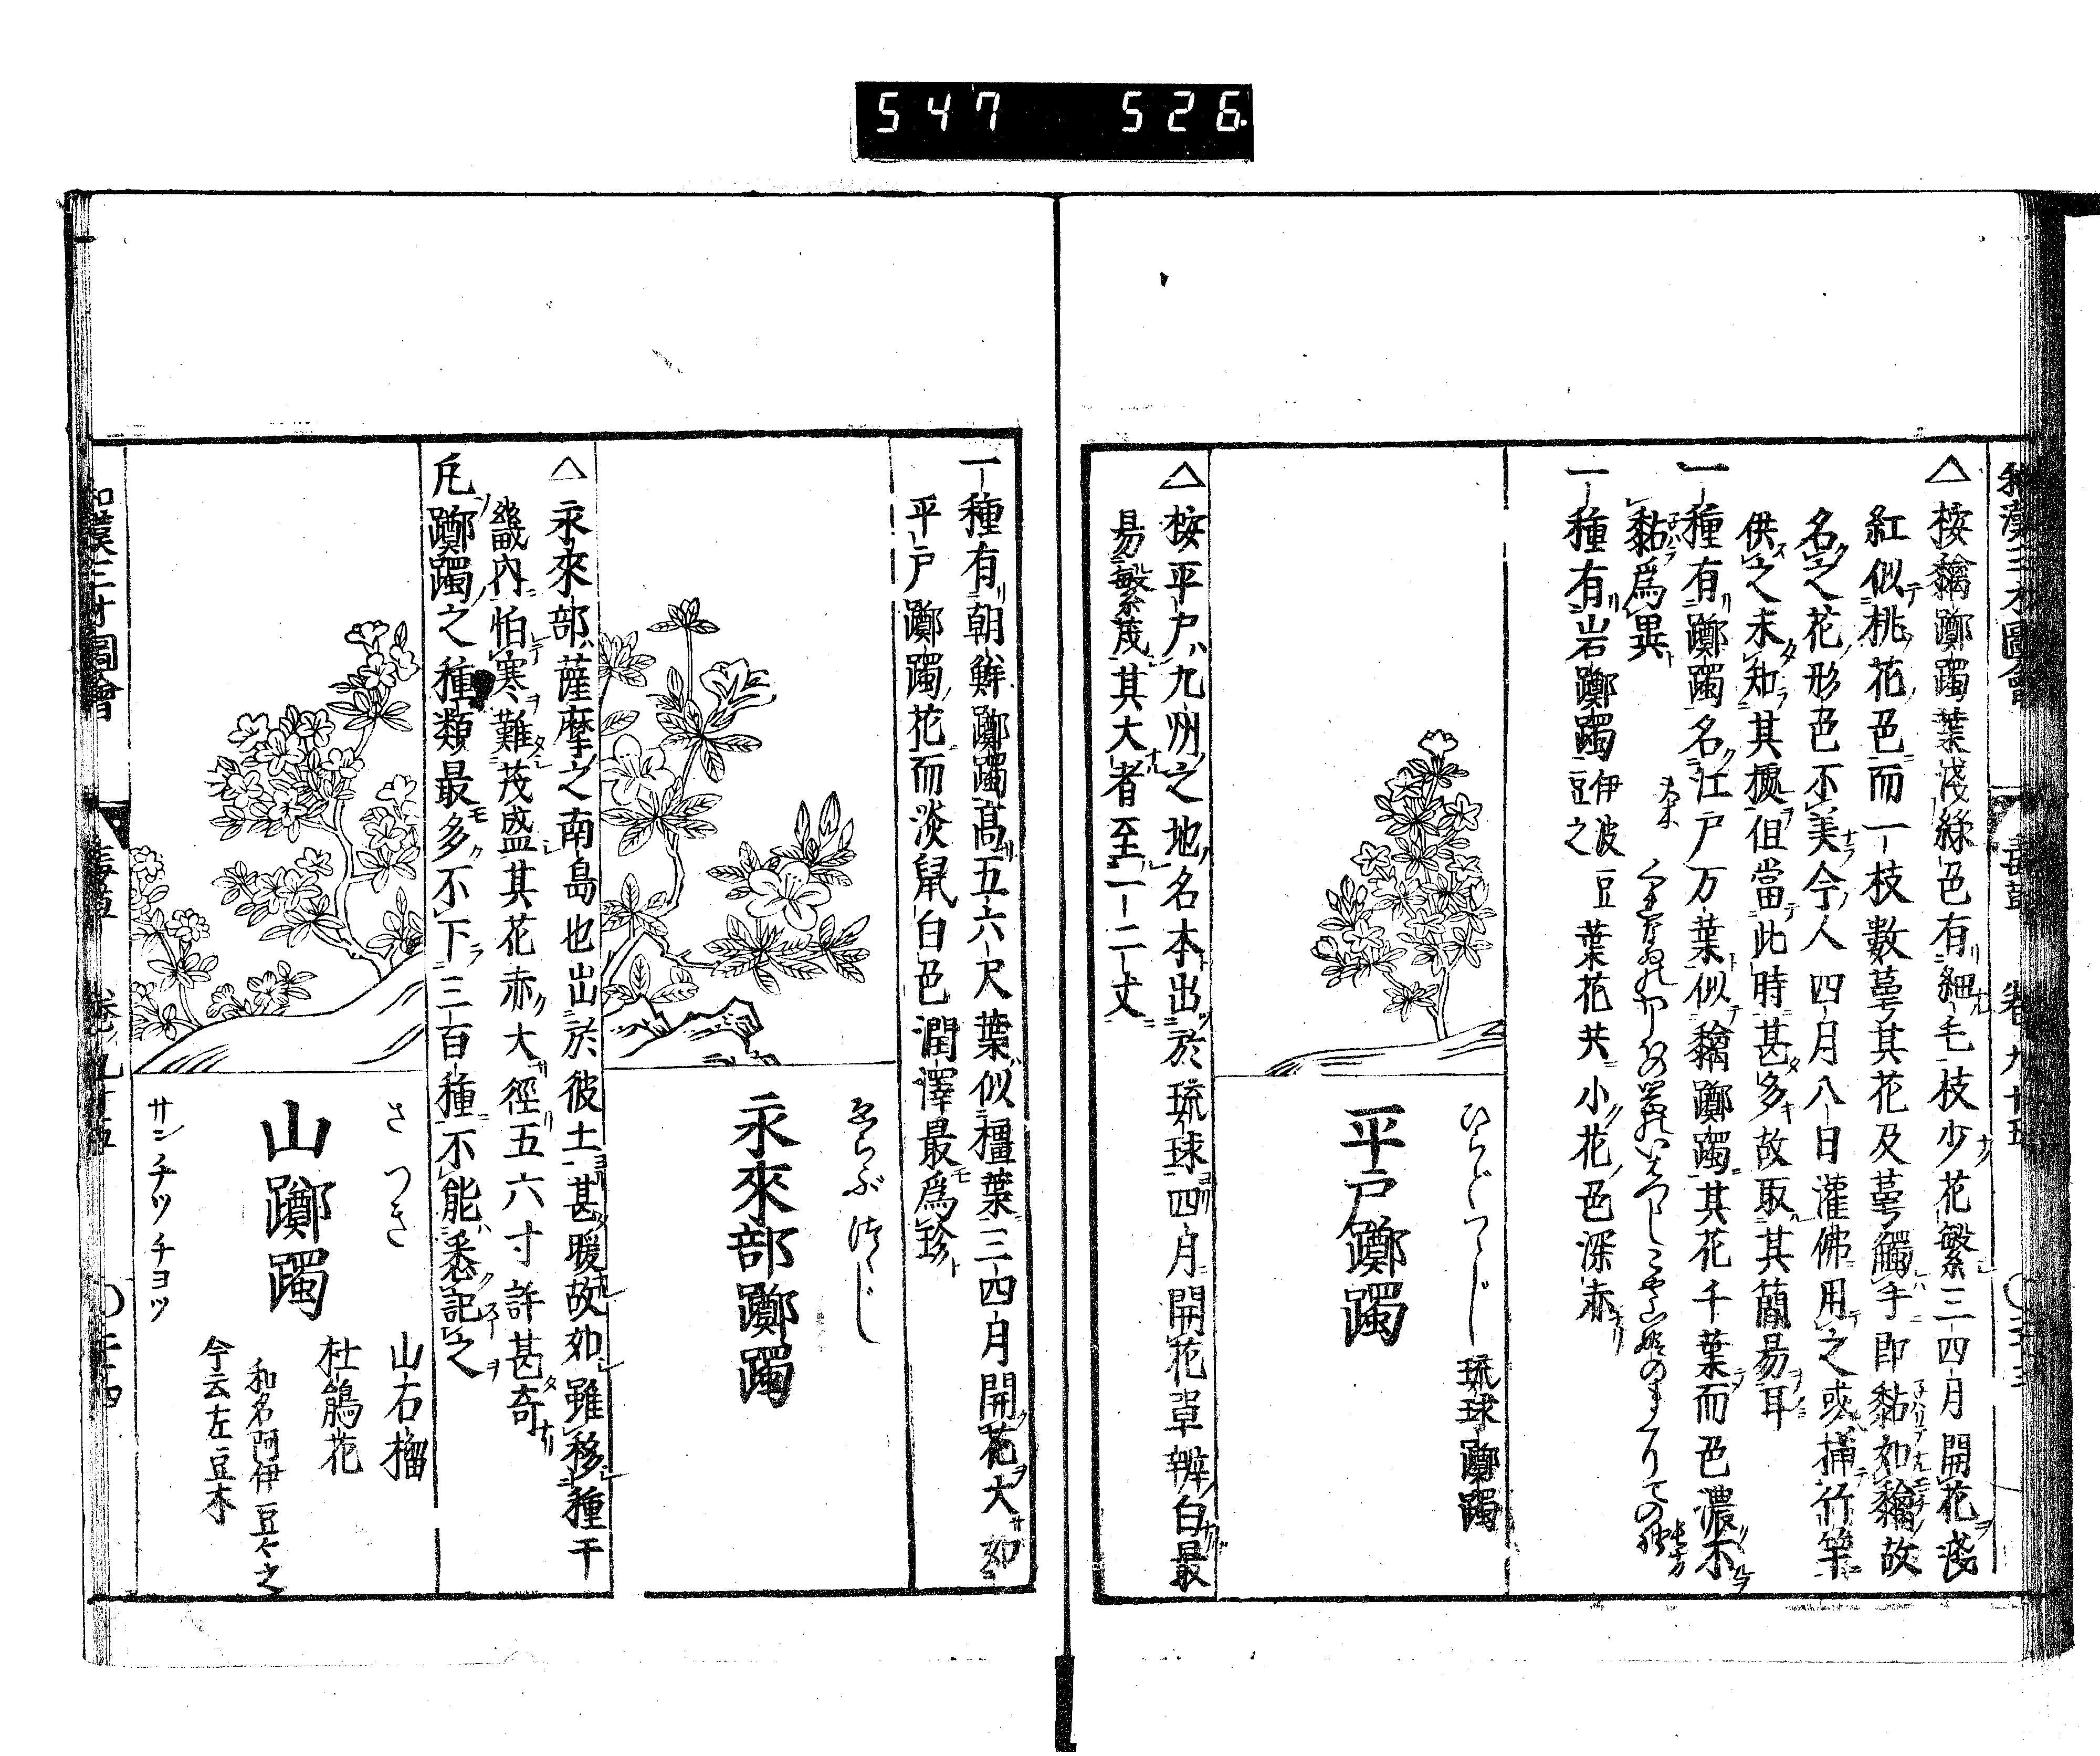 547 526
和漢三才圖會 毒草 卷九十五
△按黐躑躅葉淺綠色有細毛枝少花繁三四月開花淺
紅似桃花色而一枝數萼其花及萼觸手即黏如黐故
名之花形色不美今人四月八日灌佛用之或插竹竿
供之未知其據但當此時甚多故取其簡易耳
一種有躑躅名江戸万葉似黐躑躅其花千葉而色濃不
黏爲異
一種有岩躑躅 伊波豆豆之 葉花共小花色深赤
ひらどつゝじ
平戸躑躅
琉球躑躅
△按平戸九州之地名本出於琉球四月開花單瓣白最
易繁茂其大者至一二丈
一種有朝鮮躑躅高五六尺葉似橿葉三四月開花大如
平戸躑躅花而淡鼠白色潤澤最爲珍
ゑらぶつゝじ
永來部躑躅
△永來部薩摩之南島也出於彼土甚暖故如雖移種干
畿内怕寒難茂盛其花赤大徑五六寸許甚奇
凡躑躅之種類最多不下三百種不能悉記之
さつき
山躑躅
サンチツチヨツ
山石榴
杜鵑花
和名阿伊豆々之
今云左豆木
和漢三才圖會 毒草 卷九十五